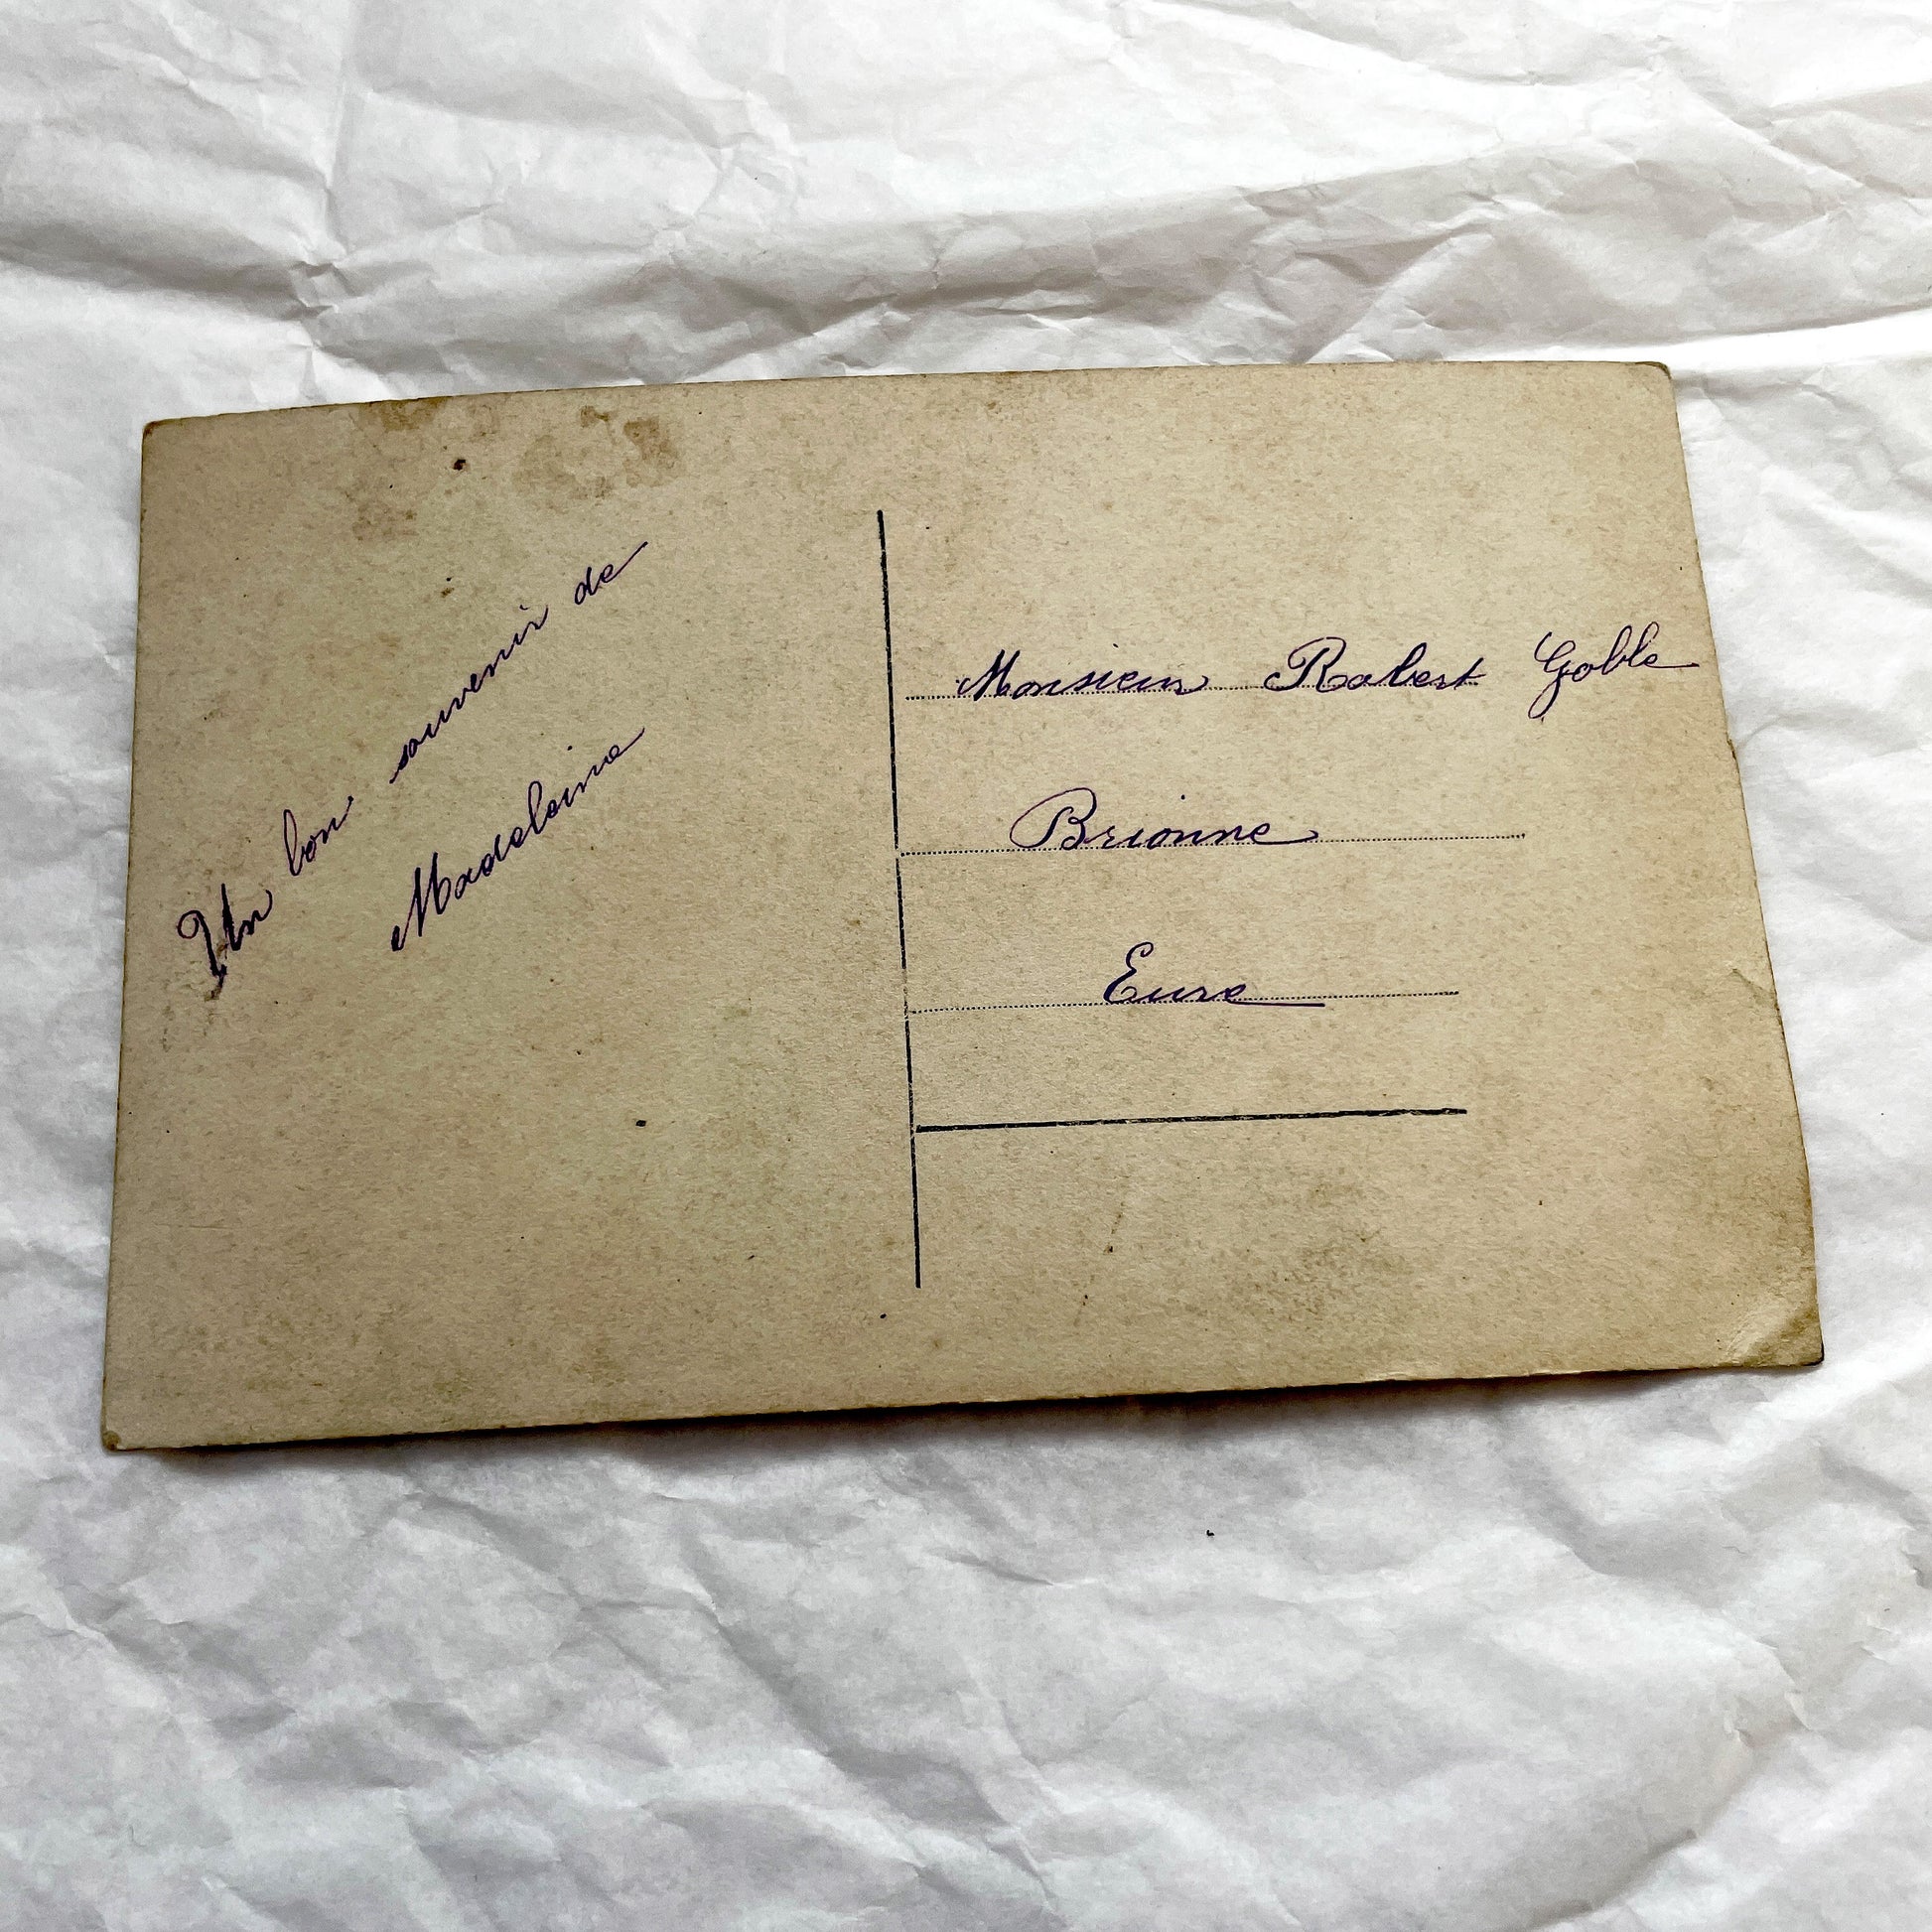 Un bon souvenir de
Madeleine
Monsieur Robert Goble
Brionne
Eure